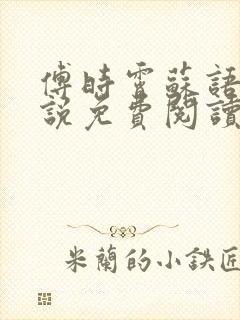 傅時霄蘇語
說免費閱讀
米蘭的小鉄匠